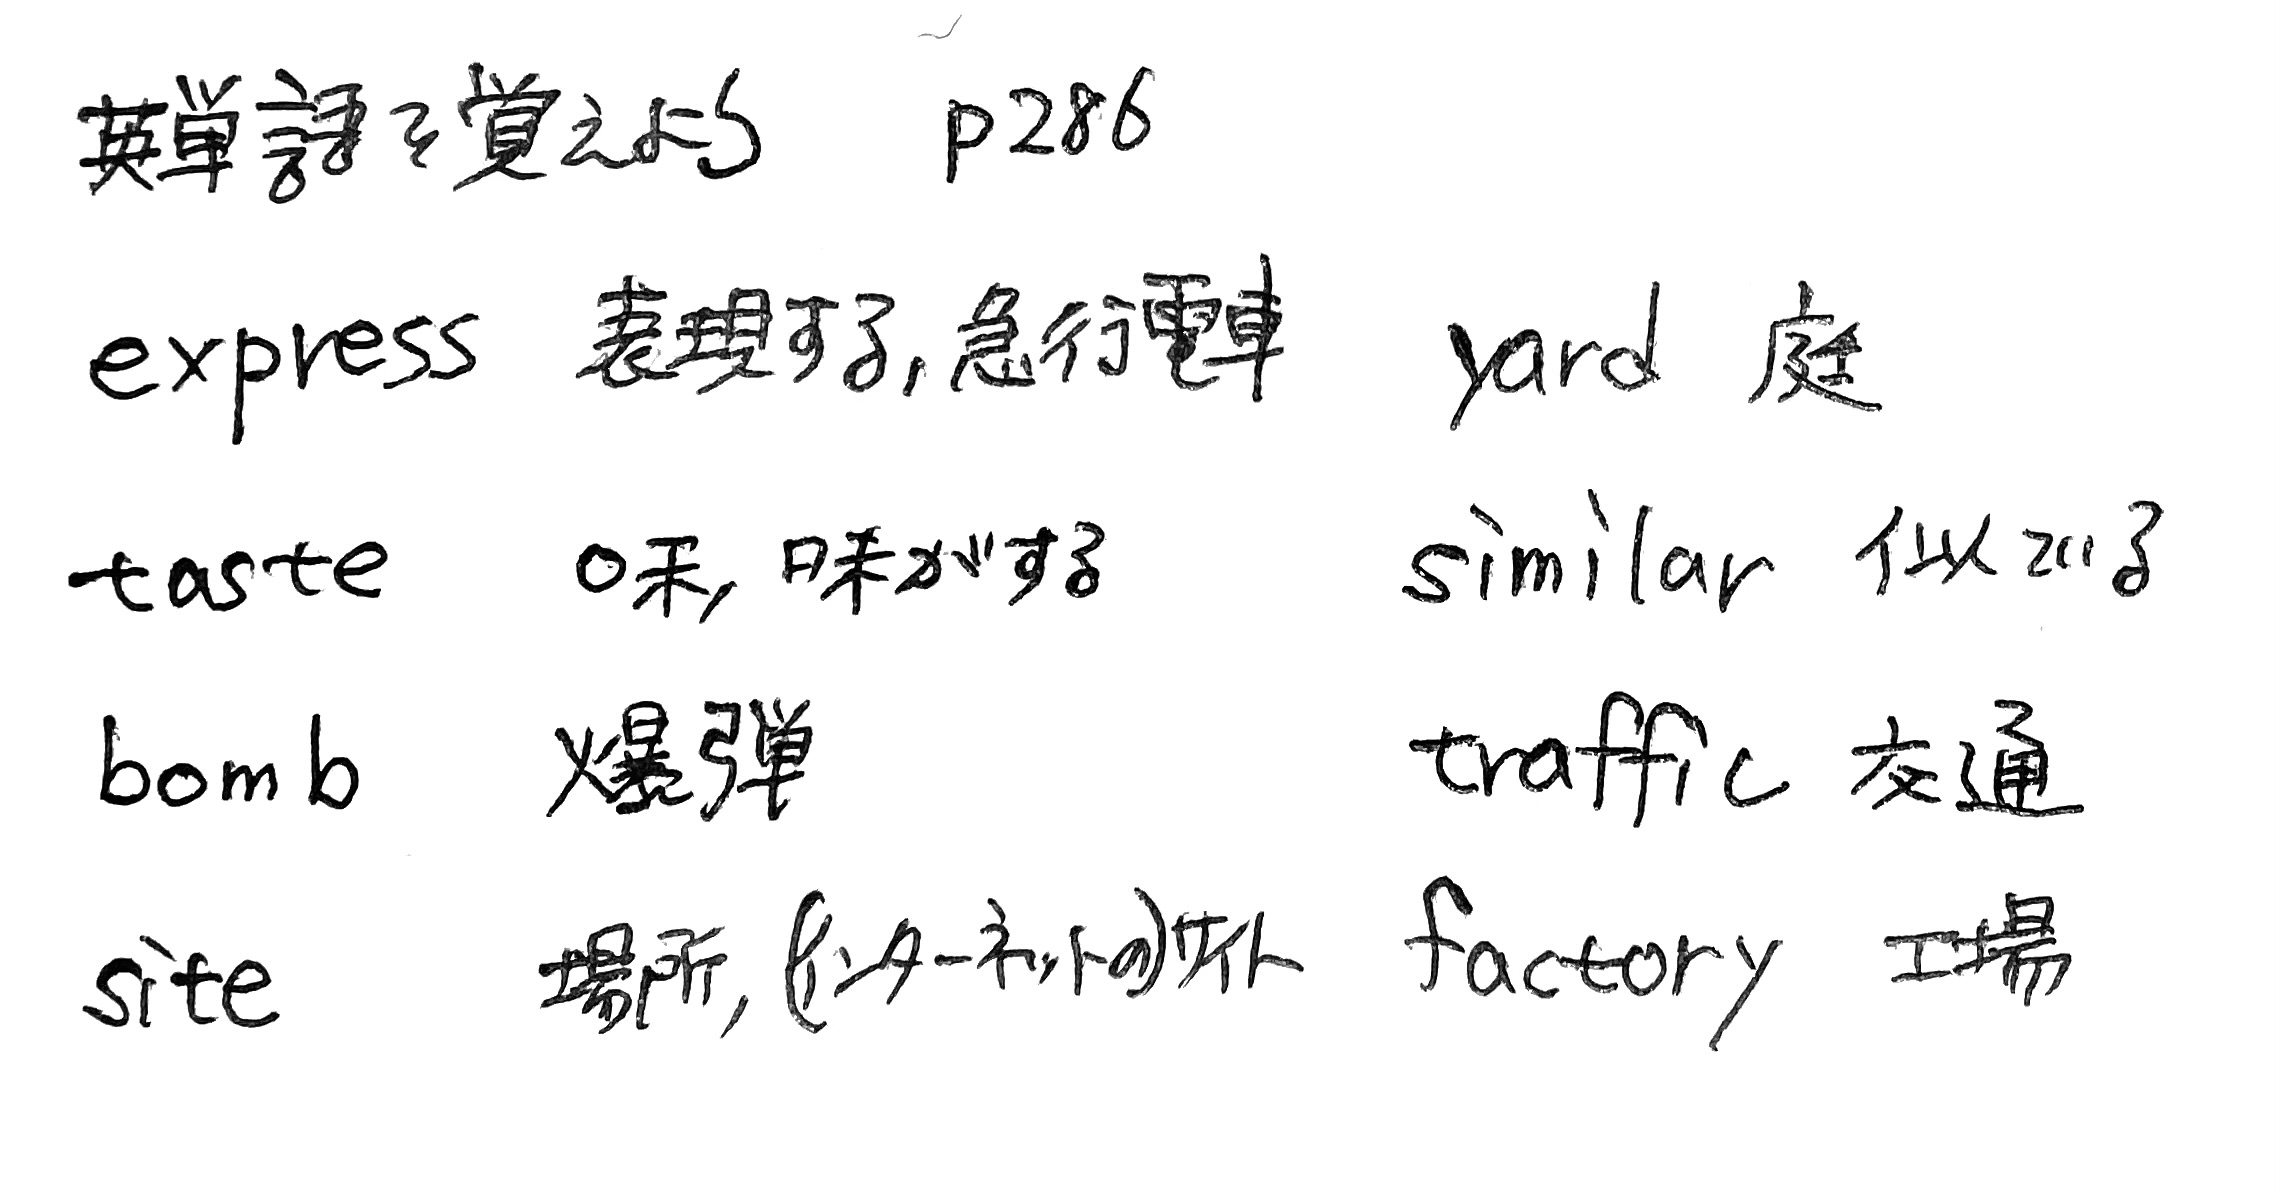 英単語を覚えよう p286
express 表現する,急行電車 yard 庭
taste 味,味がする similar 似ている
bomb 爆弾 traffic 交通
site 場所,(インターネットの)サイト factory 工場